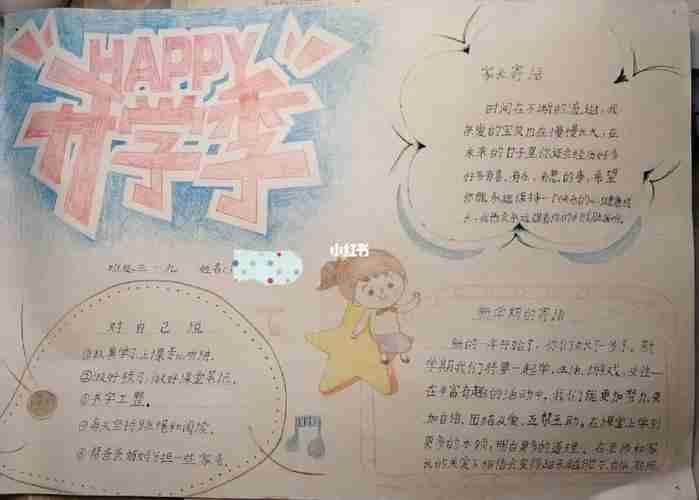 HAPPY
开学季
家长寄语
时间在不断的流逝，我
亲爱的宝贝也在慢慢长大，在
未来的日子里你还会经历好多
好多有喜、有乐、有愁的事，希望
你能永远保持一个快乐的心，健康成
长，
小红书
班级三·九 姓名：
对自己说
①认真学习上课专心听讲。
②做好预习，做好课堂笔记。
③书写工整。
④每天坚持和阅读。
⑤帮爸爸妈妈分担一些家务。
新学期的寄语
新的一年开始了，你们又长大一岁了。新
学期我们将要一起学习、生活、游戏、交往……
在丰富有趣的活动中，我们能更加努力、更
加自信、团结友爱、互帮互助。在课堂上学到
更多的本领，明白更多的道理。在老师和家
长的关爱下相信会变得越来越能干、自信、